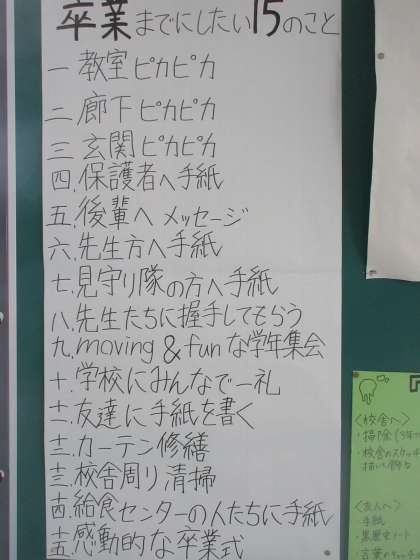 卒業までにしたい15のこと
一 教室ピカピカ
二 廊下ピカピカ
三 玄関ピカピカ
四.保護者へ手紙
五.後輩へメッセージ
六.先生方へ手紙
七.見守り隊の方へ手紙
八.先生たちに握手してもらう
九.moving & funな学年集会
十.学校にみんなで一礼
十一.友達に手紙を書く
十二.カーテン修繕
十三.校舎周り清掃
十四.給食センターの人たちに手紙
十五.感動的な卒業式
〈校舎へ〉
・掃除
・校舎のスケッチ
〈友人へ〉
・手紙
・黒歴史ノート
・言葉の